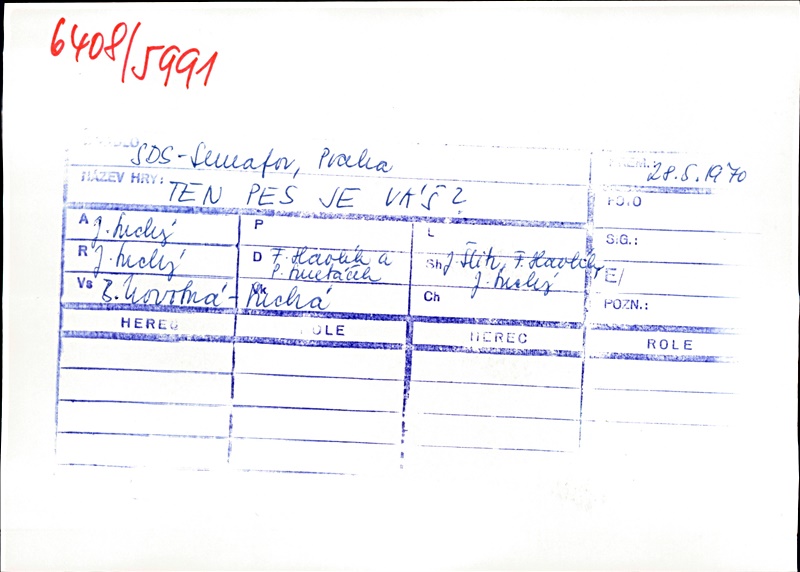 6408/5991
DIVADLO: SDS-Semafor, Praha
PREM.: 28.5.1970
NÁZEV HRY: TEN PES JE VÁŠ?
FOTO
A J. Suchý P L SIG.:
R J. Suchý D F. Havlík a P. Smetáček Sh J. Šlitr, F. Havlík, J. Suchý E/
Vs B. Novotná - Suchá Ch POZN.:
HEREC ROLE HEREC ROLE